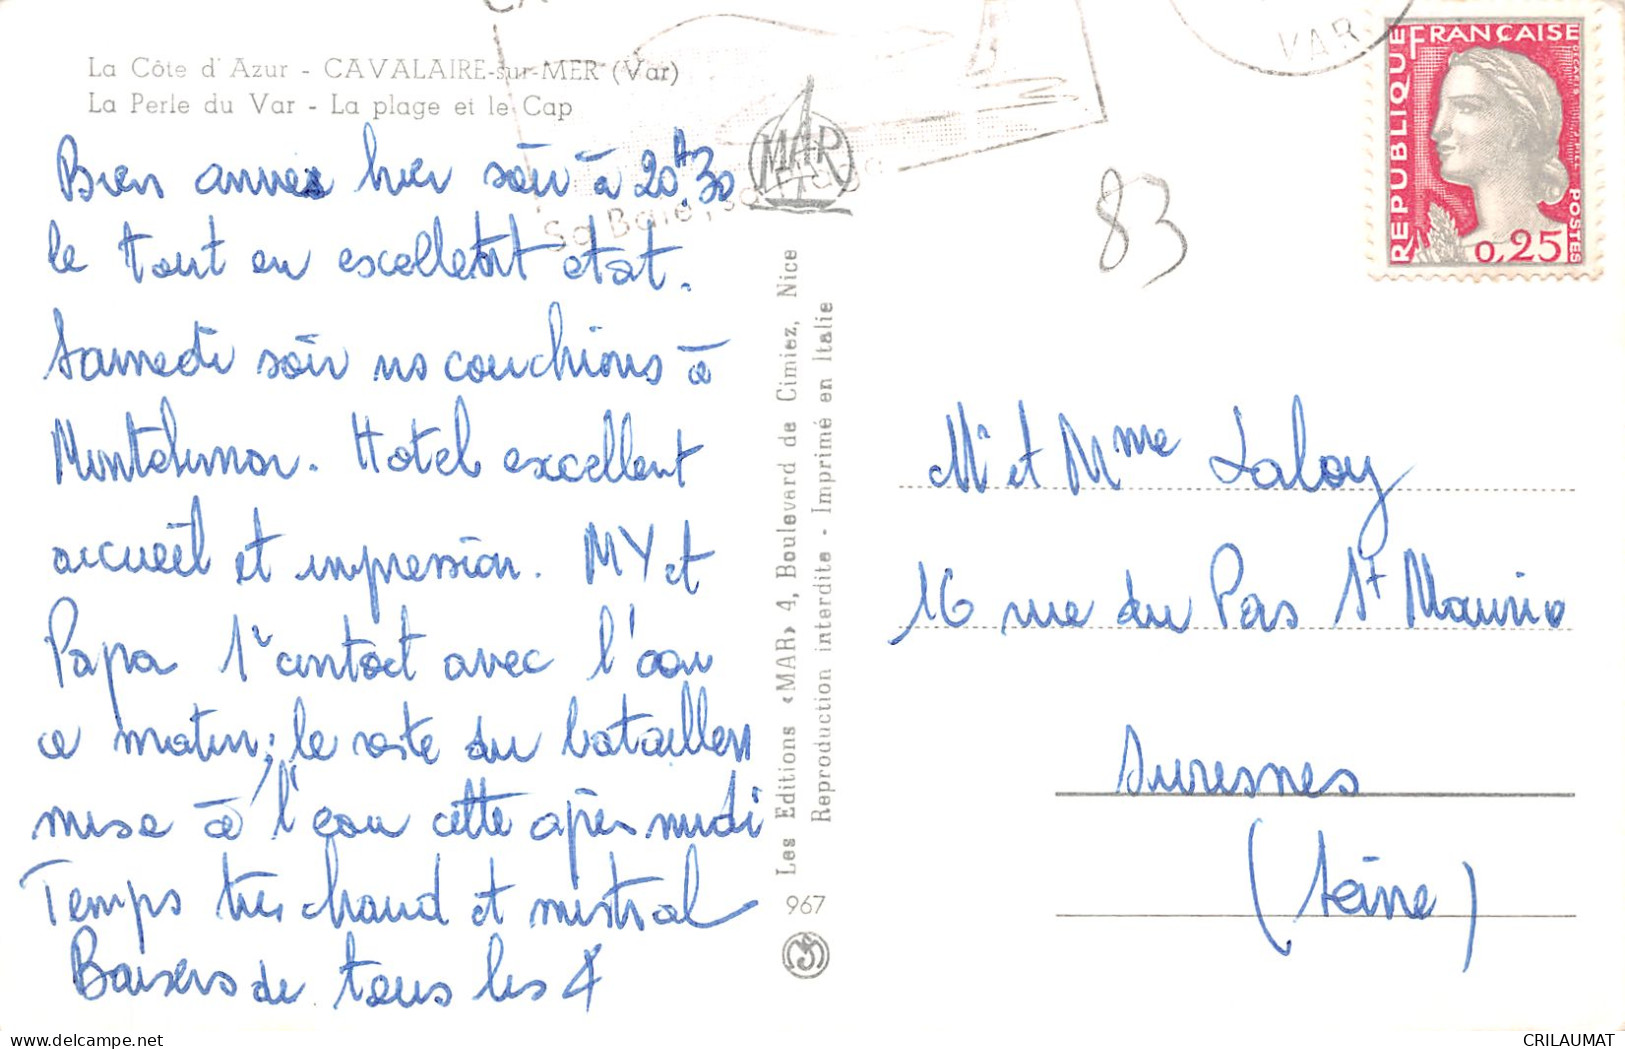 La Côte d'Azur - CAVALAIRE-sur-MER (Var)
La Perle du Var - La plage et le Cap
Bien arrivés hier soir à 20h30
le tout en excellent état.
Samedi soir ns couchions à
Montélimar. Hotel excellent
accueil et impression. MY et
Papa 1er contact avec l'eau
ce matin; le reste du bataillon
mise à l'eau cette après midi
Temps très chaud et mistral
Baisers de tous les 4
Sa Baie, sa Plage
MAR
Les Editions «MAR» 4, Boulevard de Cimiez, Nice
Reproduction interdite - Imprimé en Italie
967
VAR
REPUBLIQUE FRANÇAISE
POSTES
0,25
83
Mr et Mme Laloy
16 rue du Pas St Maurice
Suresnes
(Seine)
CRILAUMAT